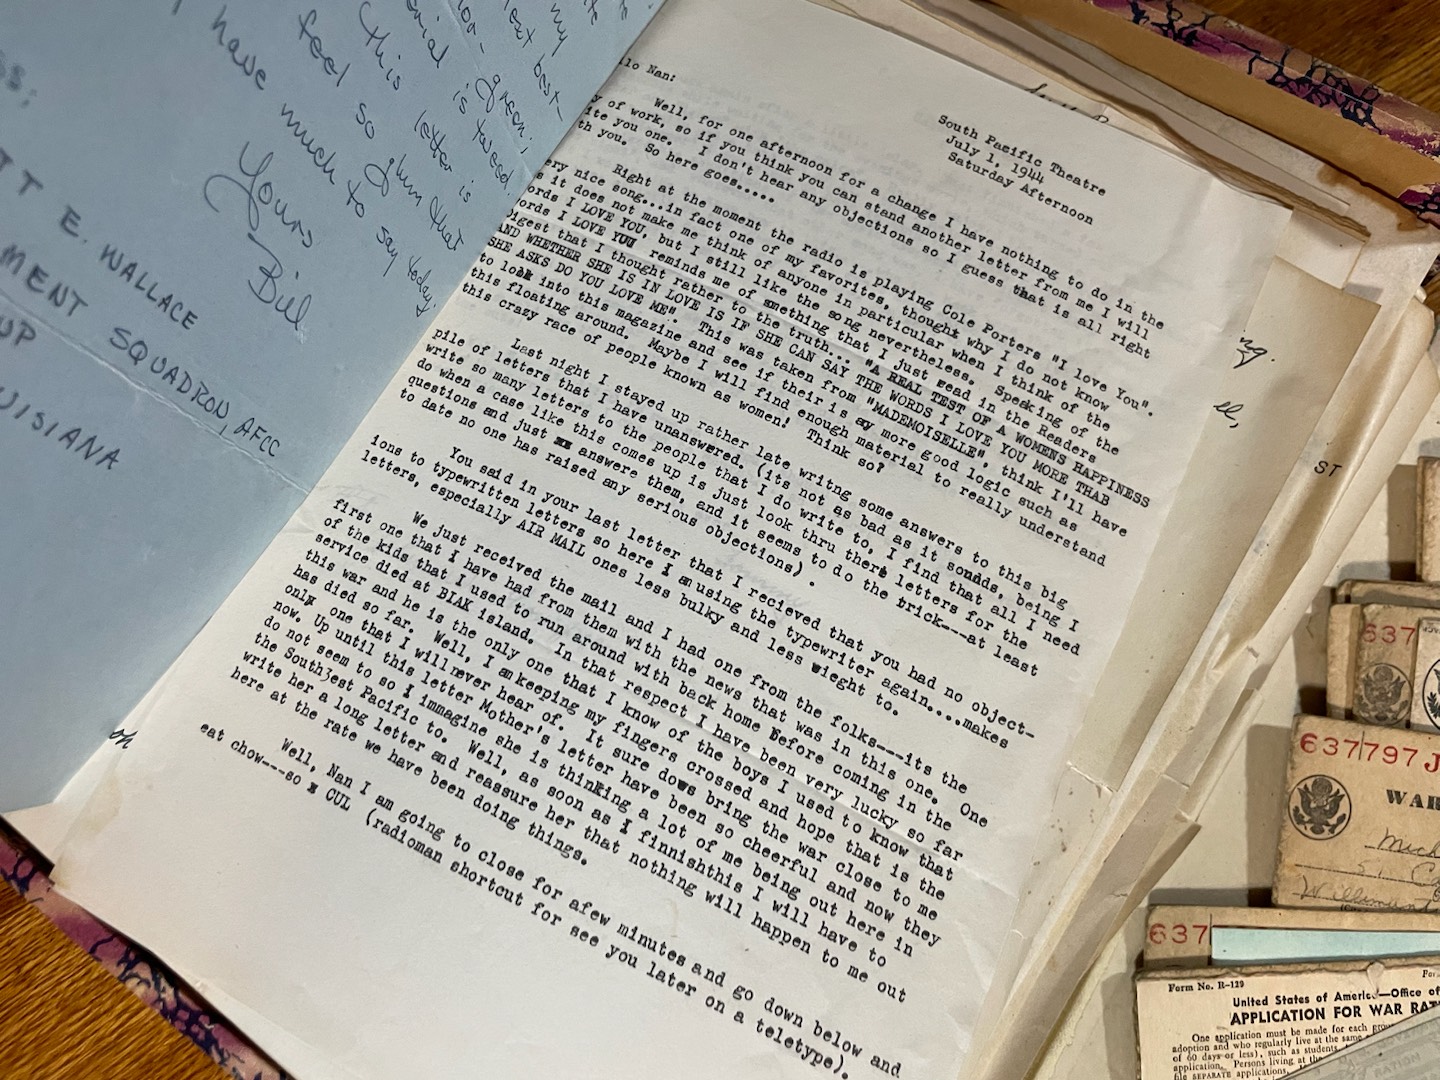 my
best
or- green,
is tweed.
this letter is
feel so glum that
have much to say today.
Yours
Bill
SS:
T E. WALLACE
MENT SQUADRON, AFCC
UP
UISIANA
South Pacific Theatre
July 1, 1944
Saturday Afternoon
llo Nan:
Well, for one afternoon for a change I have nothing to do in the
y of work, so if you think you can stand another letter from me I will
ite you one. I don't hear any objections so I guess that is all right
th you. So here goes.....
Right at the moment the radio is playing Cole Porters "I love You".
ery nice song...in fact one of my favorites, thought why I do not know
s it does not make me think of anyone in particular when I think of the
ords I LOVE YOU, but I still like the song nevertheless. Speaking of the
ords I LOVE YOU reminds me of something that I just read in the Readers
Digest that I thought rather to the truth... "A REAL TEST OF A WOMENS HAPPINESS
AND WHETHER SHE IS IN LOVE IS IF SHE CAN SAY THE WORDS I LOVE YOU MORE THAB
SHE ASKS DO YOU LOVE ME". This was taken from "MADEMOISELLE", think I'll have
to look into this magazine and see if their is ay more good logic such as
this floating around. Maybe I will find enough material to really understand
this crazy race of people known as women! Think so?
Last night I stayed up rather late writng some answers to this big
pile of letters that I have unanswered. (its not as bad as it sounds, being I
write so many letters to the people that I do write to, I find that all I need
do when a case like this comes up is just look thru there letters for the
questions and just answere them, and it seems to do the trick---at least
to date no one has raised any serious objections).
You said in your last letter that I recieved that you had no object-
ions to typewritten letters so here I am using the typewriter again....makes
letters, especially AIR MAIL ones less bulky and less wieght to.
We just received the mail and I had one from the folks---its the
first one that I have had from them with the news that was in this one. One
of the kids that I used to run around with back home before coming in the
service died at BIAK island. In that respect I have been very lucky so far
this war and he is the only one that I know of the boys I used to know that
has died so far. Well, I am keeping my fingers crossed and hope that is the
only one that I will never hear of. It sure dows bring the war close to me
now. Up until this letter Mother's letter have been so cheerful and now they
do not seem to so I immagine she is thinking a lot of me being out here in
the Southwest Pacific to. Well, as soon as I finnishthis I will have to
write her a long letter and reassure her that nothing will happen to me out
here at the rate we have been doing things.
Well, Nan I am going to close for afew minutes and go down below and
eat chow---so CUL (radioman shortcut for see you later on a teletype).
oh
ng.
ell,
ST
637
637797 J
WAR
637
Form No. R-129
United States of America—Office of
APPLICATION FOR WAR RAT
One application must be made for each
adoption and who regularly live at the same
of 60 days or less), such as students,
application. Persons living at the
file SEPARATE applications.